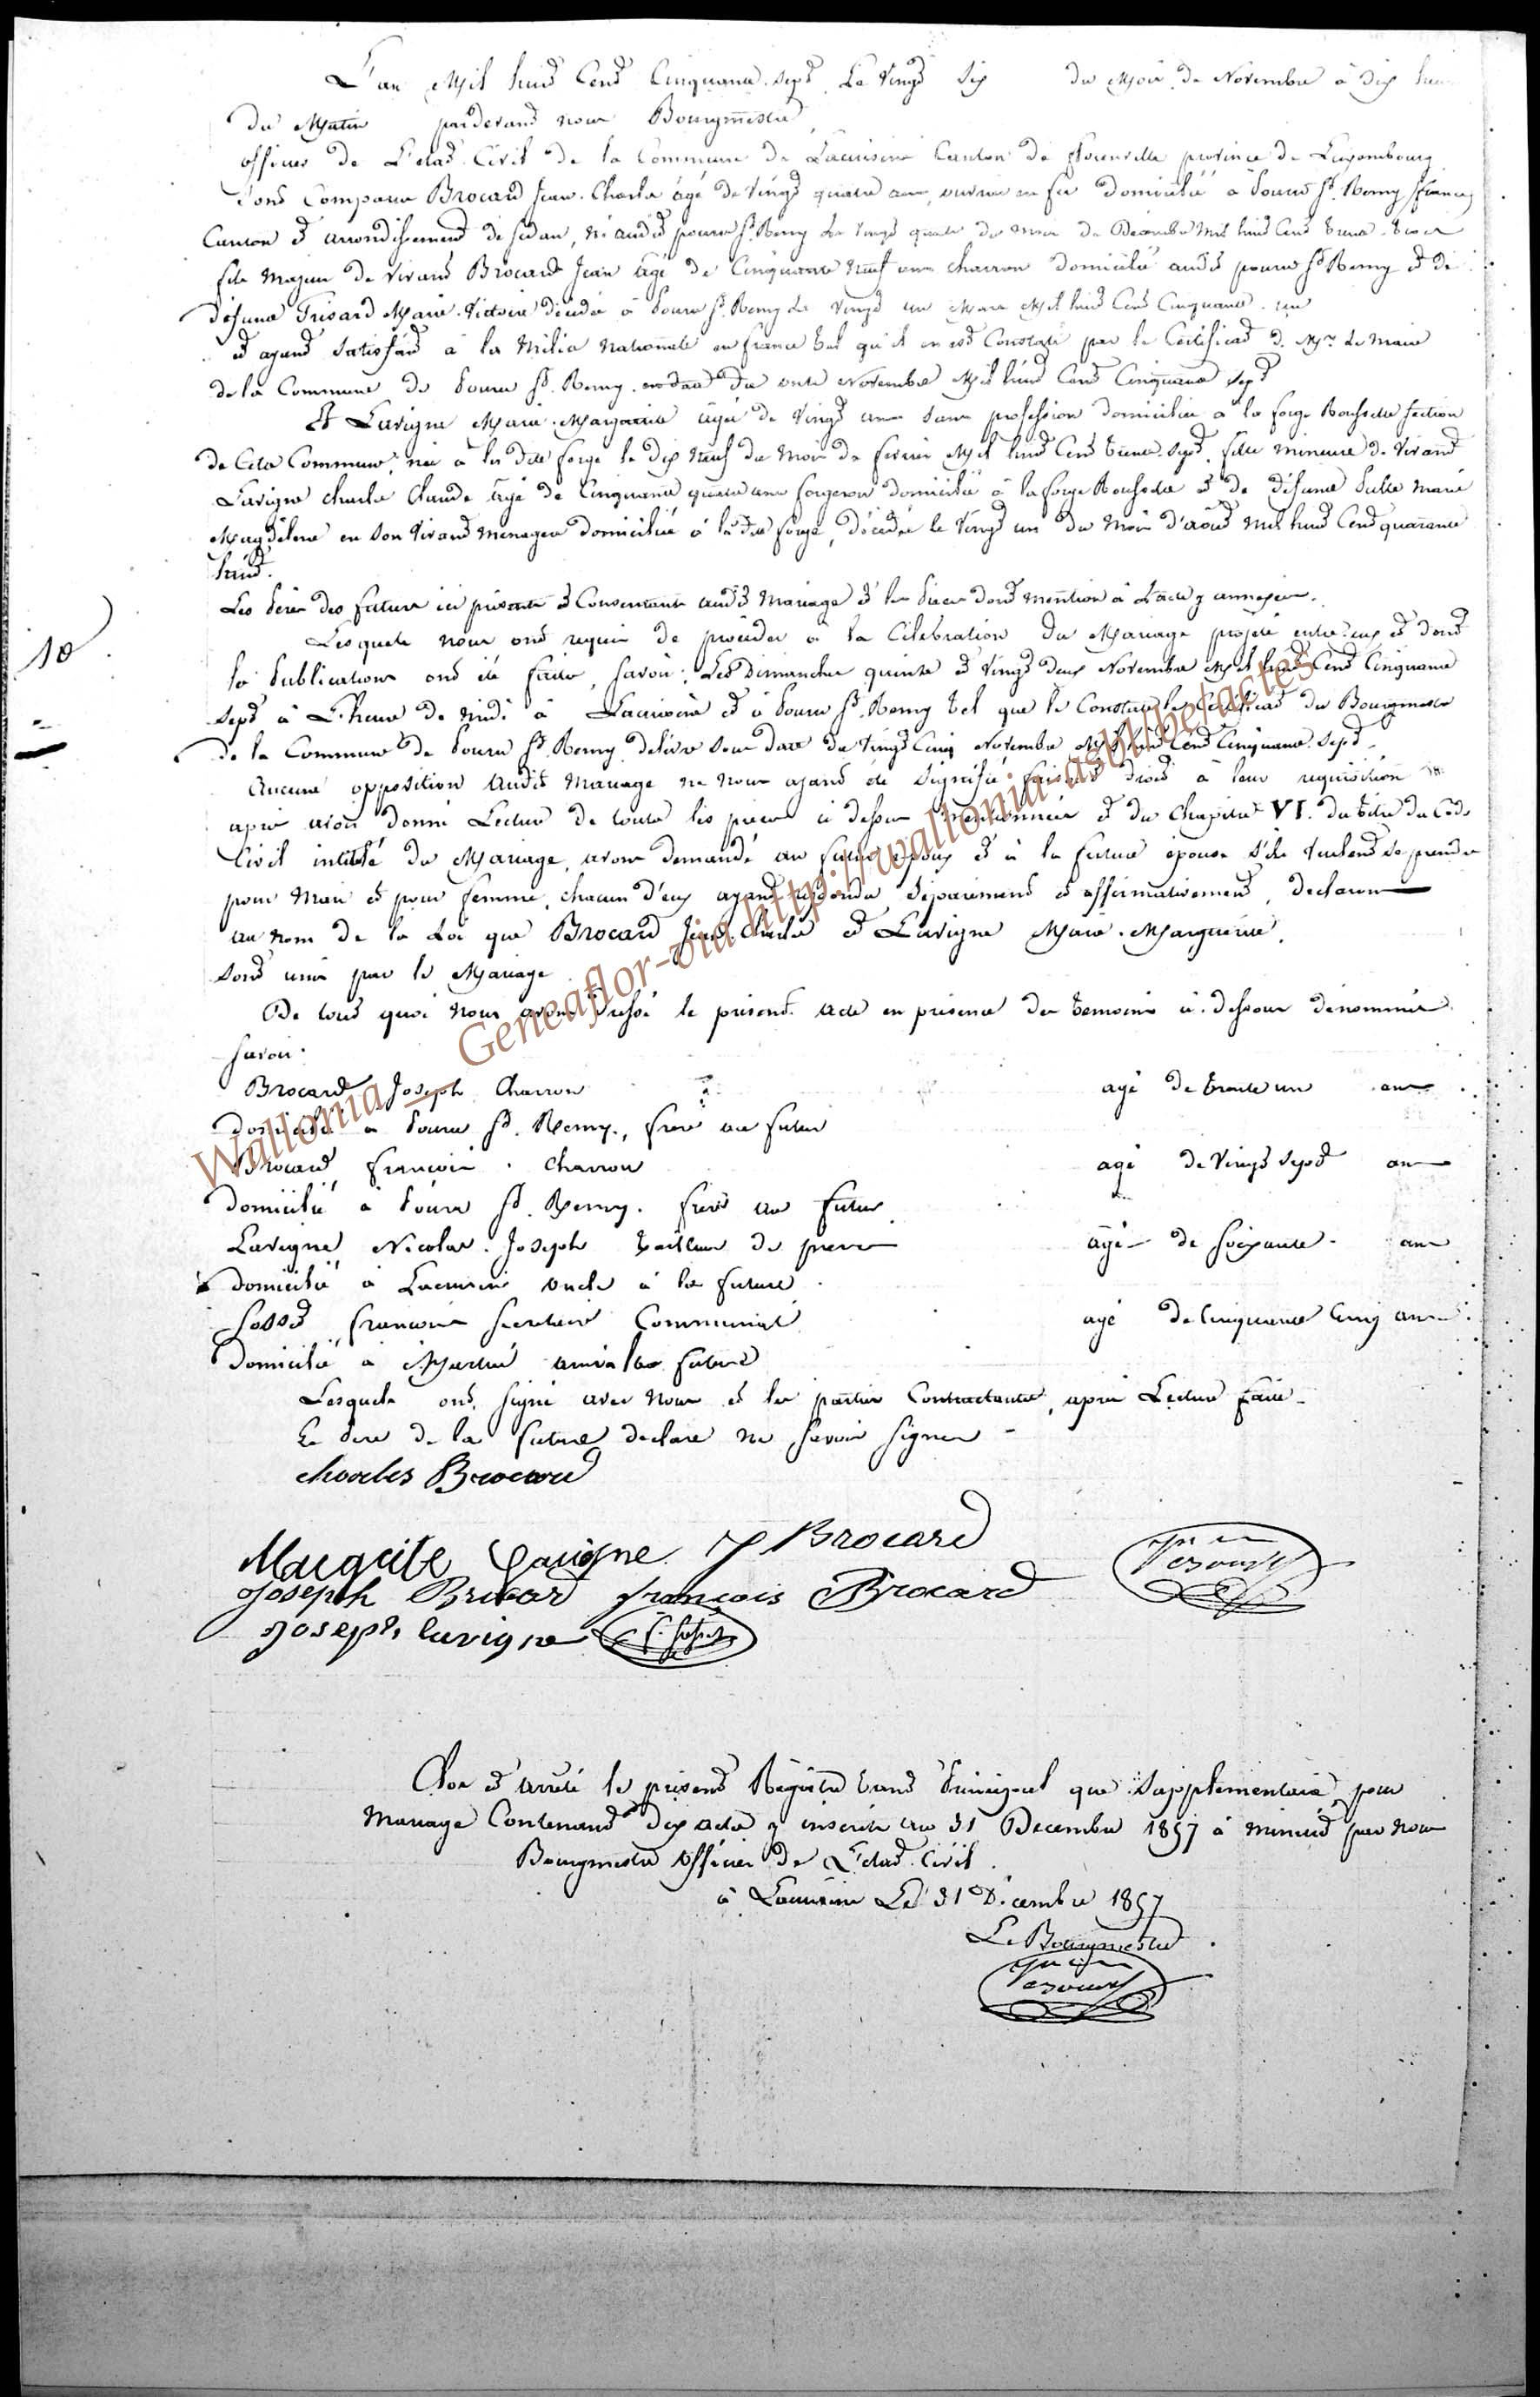 L'an Mil huit Cent Cinquante. sept, Le Vingt Six du Mois de Novembre à dix heu
du Matin pardevant nous Bourgmestre
officier de L'etat. Civil de la Commune de Lacuisine Canton de florenville province de Luxembourg
Sont Comparu Brocard Jean. Charles âgé de Vingt quatre ans, ouvrier en fer domicilié à Pouru St. Remy (france)
Canton et arrondissement de sedan, né audit pouru St. Remy Le Vingt quatre du mois de Décembre Mil huit Cent trente. trois
fils Majeur de Vivant Brocard Jean âgé de Cinquante Neuf ans Charron domicilié audit pouru St. Remy et de
défunte Frisard Marie. Victoire décédée à Pouru St. Remy Le Vingt un Mars Mil huit Cent Cinquante. un
et ayant Satisfait à la Milice Nationale en france tel qu'il en est Constaté par le Certificat de Mr. Le Maire
de la Commune de Pouru St. Remy. en date du onze Novembre Mil huit Cent Cinquante Sept
Et Lavigne Marie. Marguerite âgée de Vingt ans Sans profession domiciliée à la forge Roussel Section
de Cete Commune, née à la dite forge le dix Neuf du Mois de fevrier Mil huit Cent trente. Sept, fille mineure de Vivant
Lavigne charles Claude âgé de Cinquante quatre ans forgeron domicilié à la forge Roussel et de défunte Marie
Magdelene en Son Vivant menagere domiciliée à la dite forge, décédée le Vingt un du Mois d'août mil huit Cent quarante
huit.
Les Péres des futurs ici présents et Consentants audit Mariage et les Pièces dont mention à L'acte y annexées.
Lesquels nous ont requis de procéder à la Célébration du Mariage projeté entre eux et dont
les Publications ont été faites, Savoir: Les Dimanches quinze et Vingt deux Novembre Mil huit Cent Cinquante
Sept à L'heure de Midi à Lacuisine et à Pouru St. Remy tel que le Constate le Certificat du Bourgmestre
de la Commune de Pouru St. Remy délivré Sous date du Vingt Cinq Novembre Mil huit Cent Cinquante. Sept.
Aucune opposition audit Mariage ne nous ayant été Signifiée faisant droit à leur requisition
après avoir donné Lecture de toutes les pièces ci dessus mentionnées et du Chapitre VI. du titre du Code
Civil intitulé du Mariage, avons demandé au futur epoux et à la future épouse S'ils Veulent Se prendre
pour Mari et pour femme, chacun d'eux ayant répondu Séparément et affirmativement, declarons
au nom de la Loi que Brocard Jean. Charles et Lavigne Marie. Marguerite.
Sont unis par le Mariage
De tout quoi nous avons dressé le présent. acte en présence des temoins ci. dessous dénommés
Savoir:
Brocard Joseph Charron agé de trente un ans
domicilié à Pouru St. Remy., frère au futur
Brocard François. Charron agé de Vingt Sept ans
domicilié à Pouru St. Remy. frère au futur
Lavigne Nicolas. Joseph tailleur de pierre âgé de Soixante. ans
domicilié à Lacuisine oncle à la future.
Fosset François Secretaire Communal agé de Cinquante Cinq ans
domicilié à Martué ami à la future
Lesquels ont Signé avec Nous et les parties Contractantes, après Lecture faite.
Le Pere de la future declare ne Savoir Signer
charles Brocard
Margcite Lavigne J Brocard
Joseph Brocard francois Brocard
Joseph lavigne F. Fosset
Clos et arrêté le présent Régistre tant Principal que Supplémentaire, pour
Mariage Contenant dix actes y inscrits au 31 Decembre 1857 à minuit par Nous
Bourgmestre Officier De L'etat. Civil.
à Lacuisine Le 31 Décembre 1857
Le Bourgmestre
10
Wallonia _ Geneaflor-via http://wallonia-asbl/be/actes